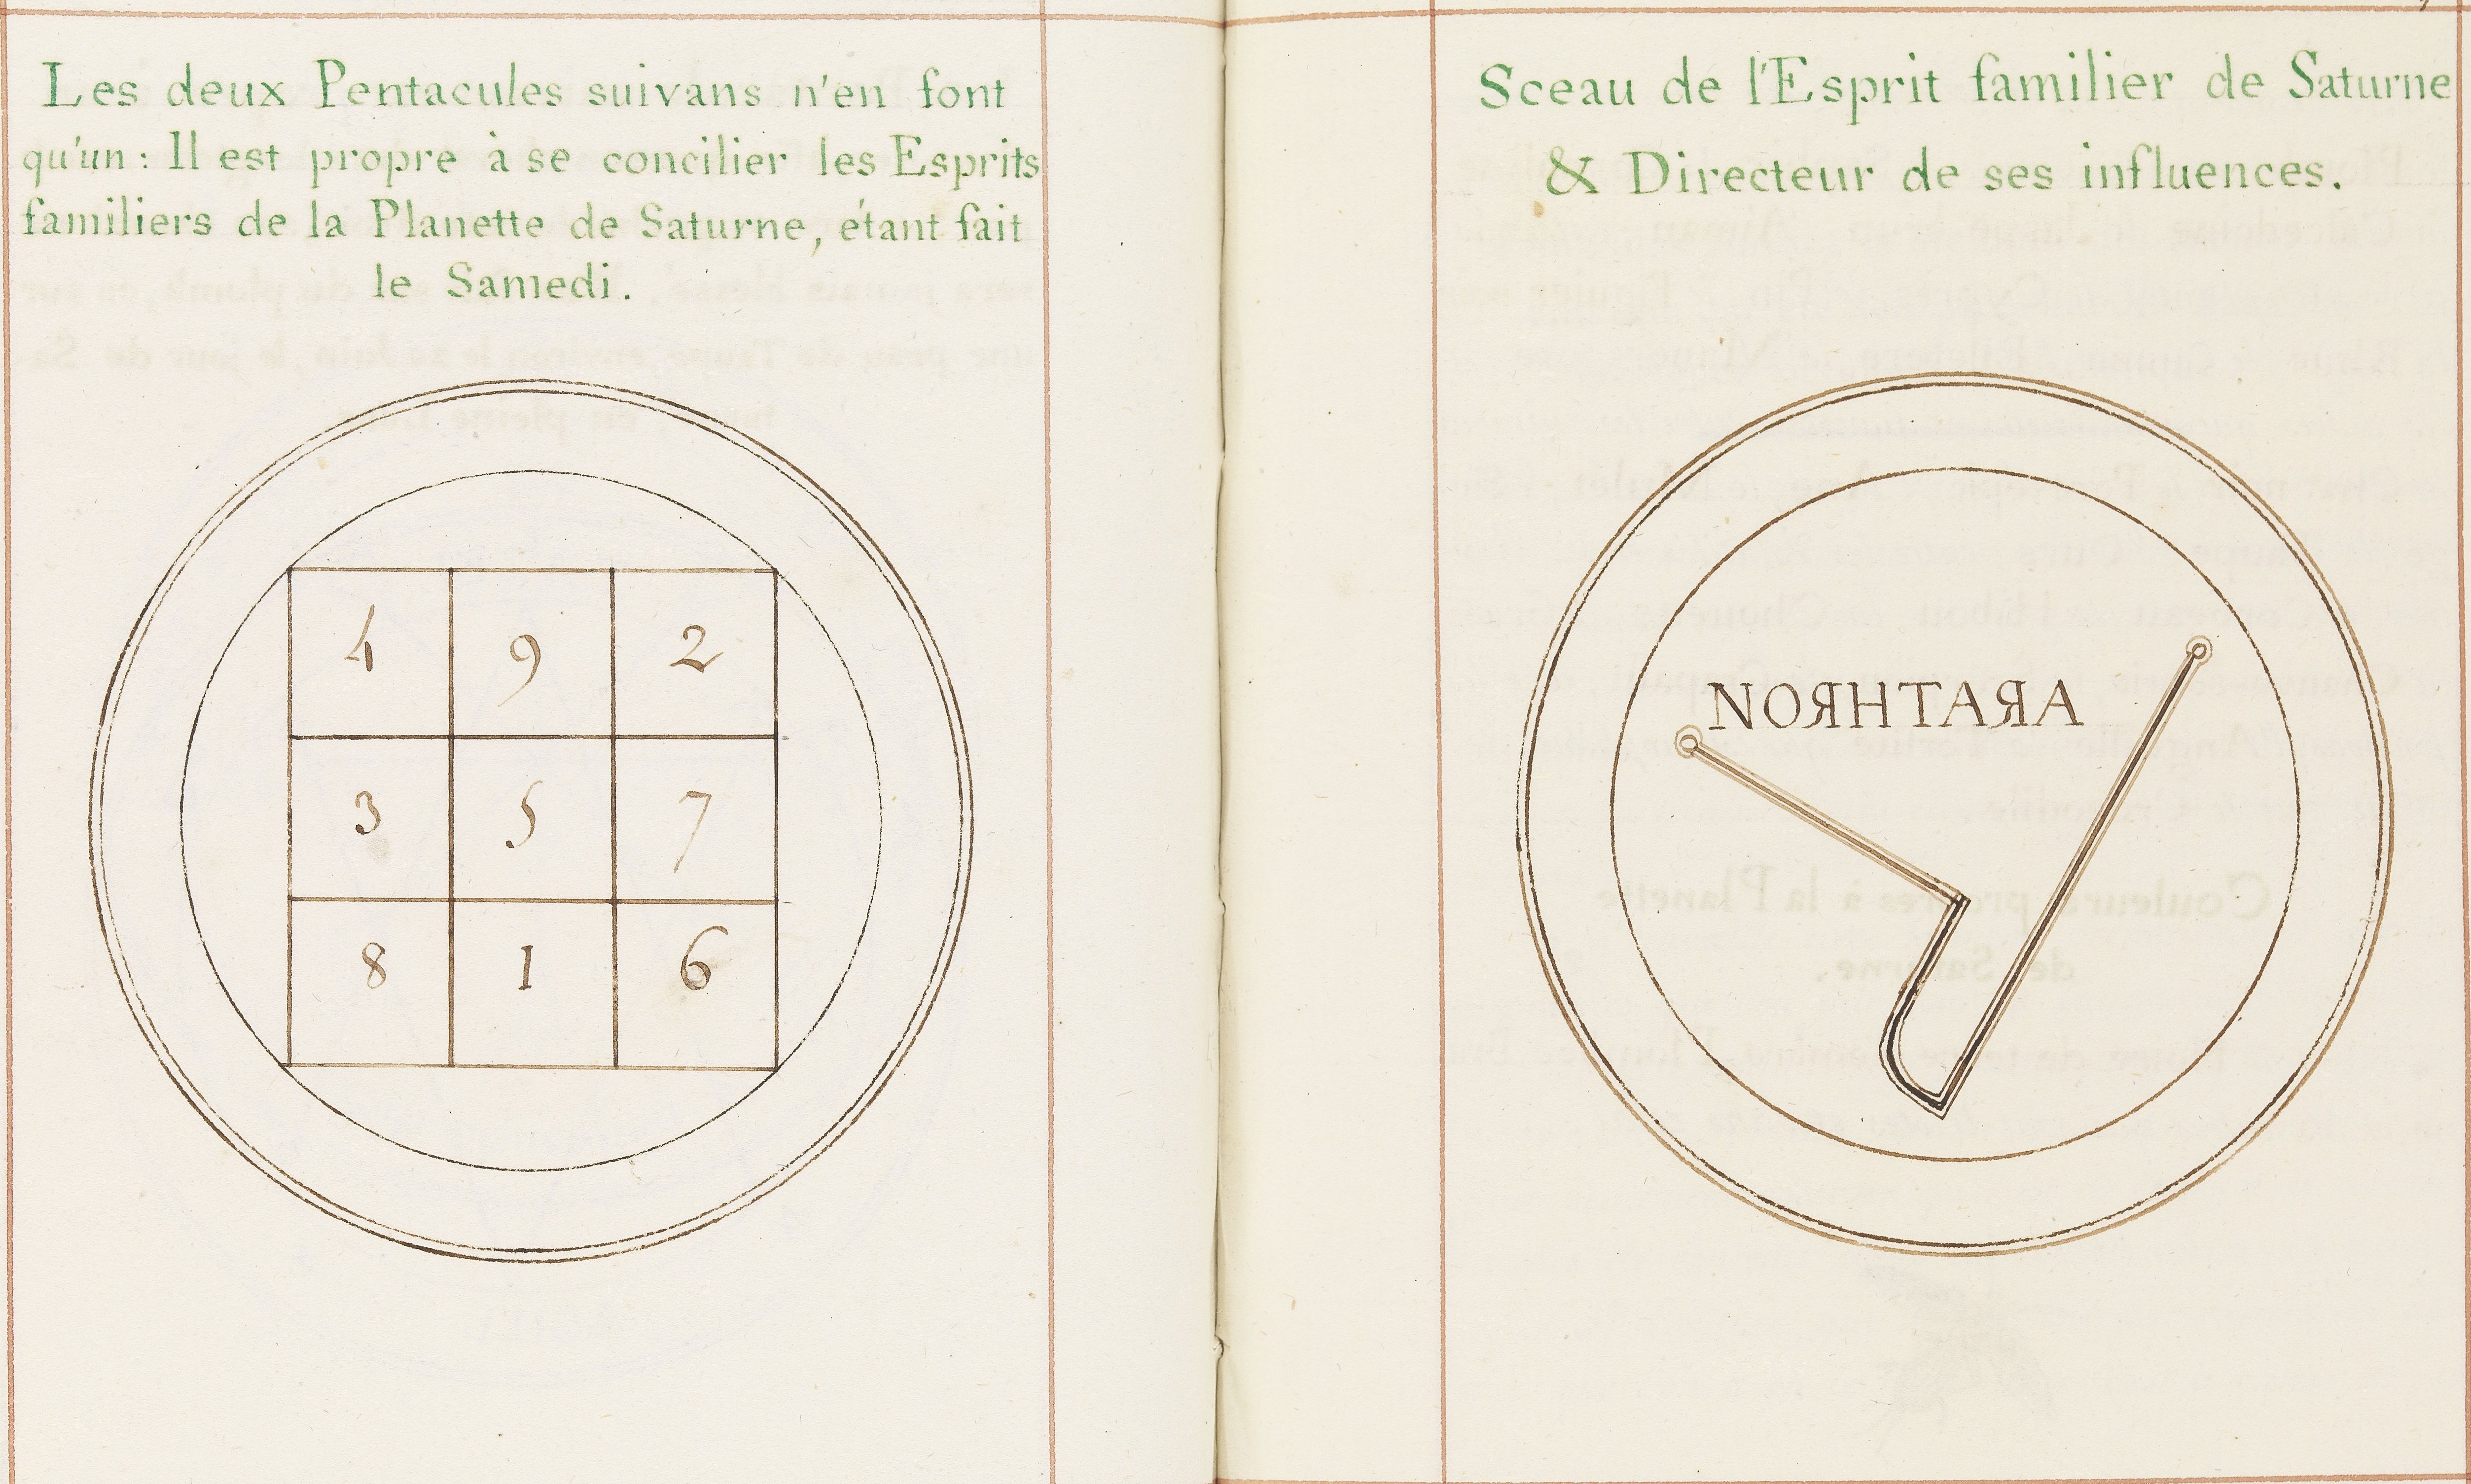 Les deux Pentacules suivans n'en font
qu'un : Il est propre à se concilier les Esprits
familiers de la Planette de Saturne, étant fait
le Samedi.
4 9 2
3 5 7
8 1 6
Sceau de l'Esprit familier de Saturne
& Directeur de ses influences.
NOЯHTAЯA